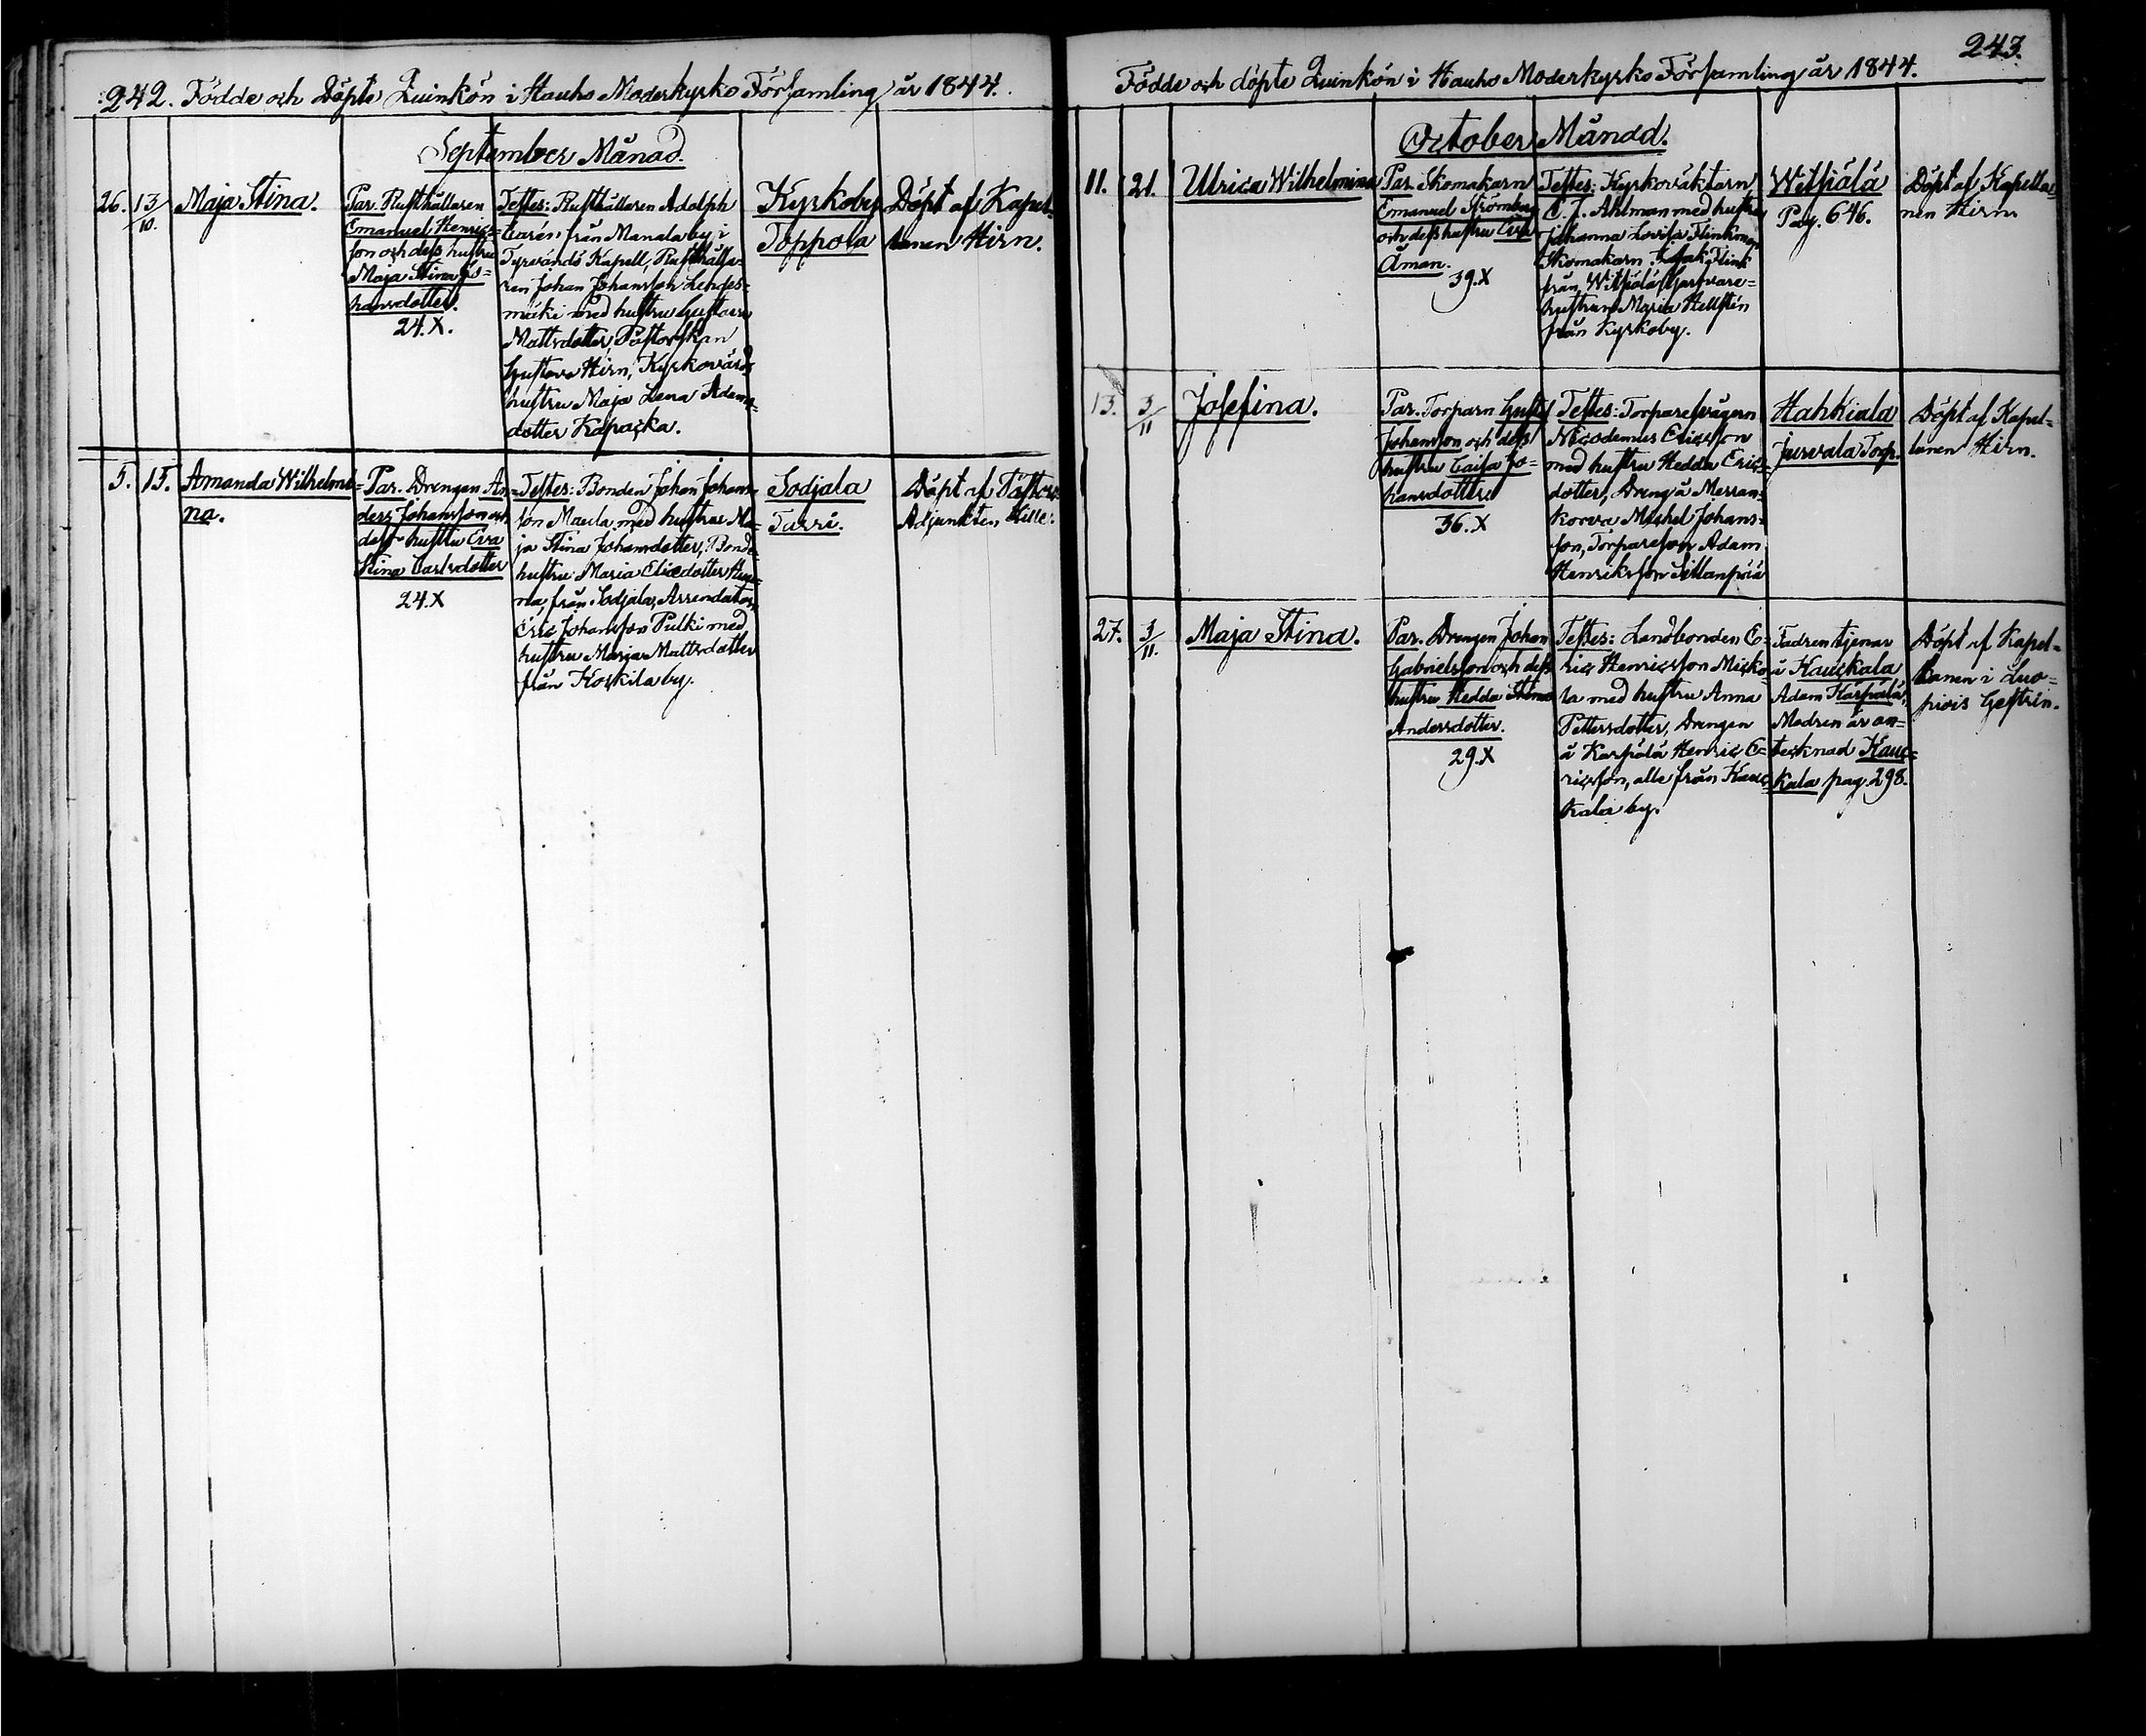 242. Födde och Döpte Quinkön i Hauho Moderkyrko Församling år 1844.
September Månad.
26. 13/10. Maja Stina.
Par. Rusthållaren
Emanuel Henrics=
son och dess hustru
Maja Stina Jo=
hansdotter.
24.X.
Testes: Rusthållaren Adolph
från Manala by i
Tyrvändö Kapell, Rusthålla=
ren Johan Johansson Lehdes=
mäki med hustru Gustava
Mattsdotter, Pastorskan
Gustava Hirn, Kyrkovärds
hustru Maja Lena Adams=
dotter Kapacka.
Kyrkoby
Toppola
Döpt af Kapel=
lanen Hirn.
5. 15. Amanda Wilhelmi=
na.
Par. Drengen An=
ders Johansson och
dess hustru Eva
Stina Carlsdotter
24.X
Testes: Bonden Johan Johans=
son Maula med hustru Ma=
ja Stina Johansdotter, Bonde=
hustru Maria Ericdotter
från Sodjala, Arrendator
Eric Johansson Pulki med
hustru Maria Mattsdotter
från Koskila by.
Sodjala
Turri.
Döpt af Pastors
Adjunkten Hille.
243.
Födde och döpte Quinkön i Hauho Moderkyrko Församling år 1844.
October Månad.
11. 21. Ulrica Wilhelmina
Par. Skomakarn
Emanuel Strömberg
och dess hustru Eva
Åman.
39.X
Testes: Kyrkoväktarn
C. J. Ahlman med hustru
Johanna Lovisa Flinkman
Skomakarn Isak Flink
från Wittsiälä, Garfvare=
hustrun Maria Hellstén
från Kyrkoby.
Wittsiälä
Pag. 646.
Döpt af Kapella=
nen Hirn.
13. 3/11 Josefina.
Par. Torparn Gustaf
Johansson och dess
hustru Caisa Jo=
hansdotter
36.X
Testes: Torparesvågern
Nicodemus Ericsson
med hustru Hedda Erics=
dotter, Dreng å Merran=
korva Michel Johans=
son, Torpareson Adam
Henriksson Sillanpää
Hahkiala
Jurvala Torp.
Döpt af Kapel=
lanen Hirn.
27. 3/11. Maja Stina.
Par. Drengen Johan
Gabrielsson och dess
hustru Hedda Stina
Andersdotter.
29.X
Testes: Landbonden E=
ric Henricsson Micko=
la med hustru Anna
Pettersdotter, Drengen
å Karpälä Henric E=
ricsson, alla från Kauc=
kala by.
Fadren tjenar
å Kauckala
Adam Karpälä,
Modren är an=
tecknad Kauc=
kala pag. 298.
Döpt af Kapel=
lanen i Luo=
piois Gestrin.